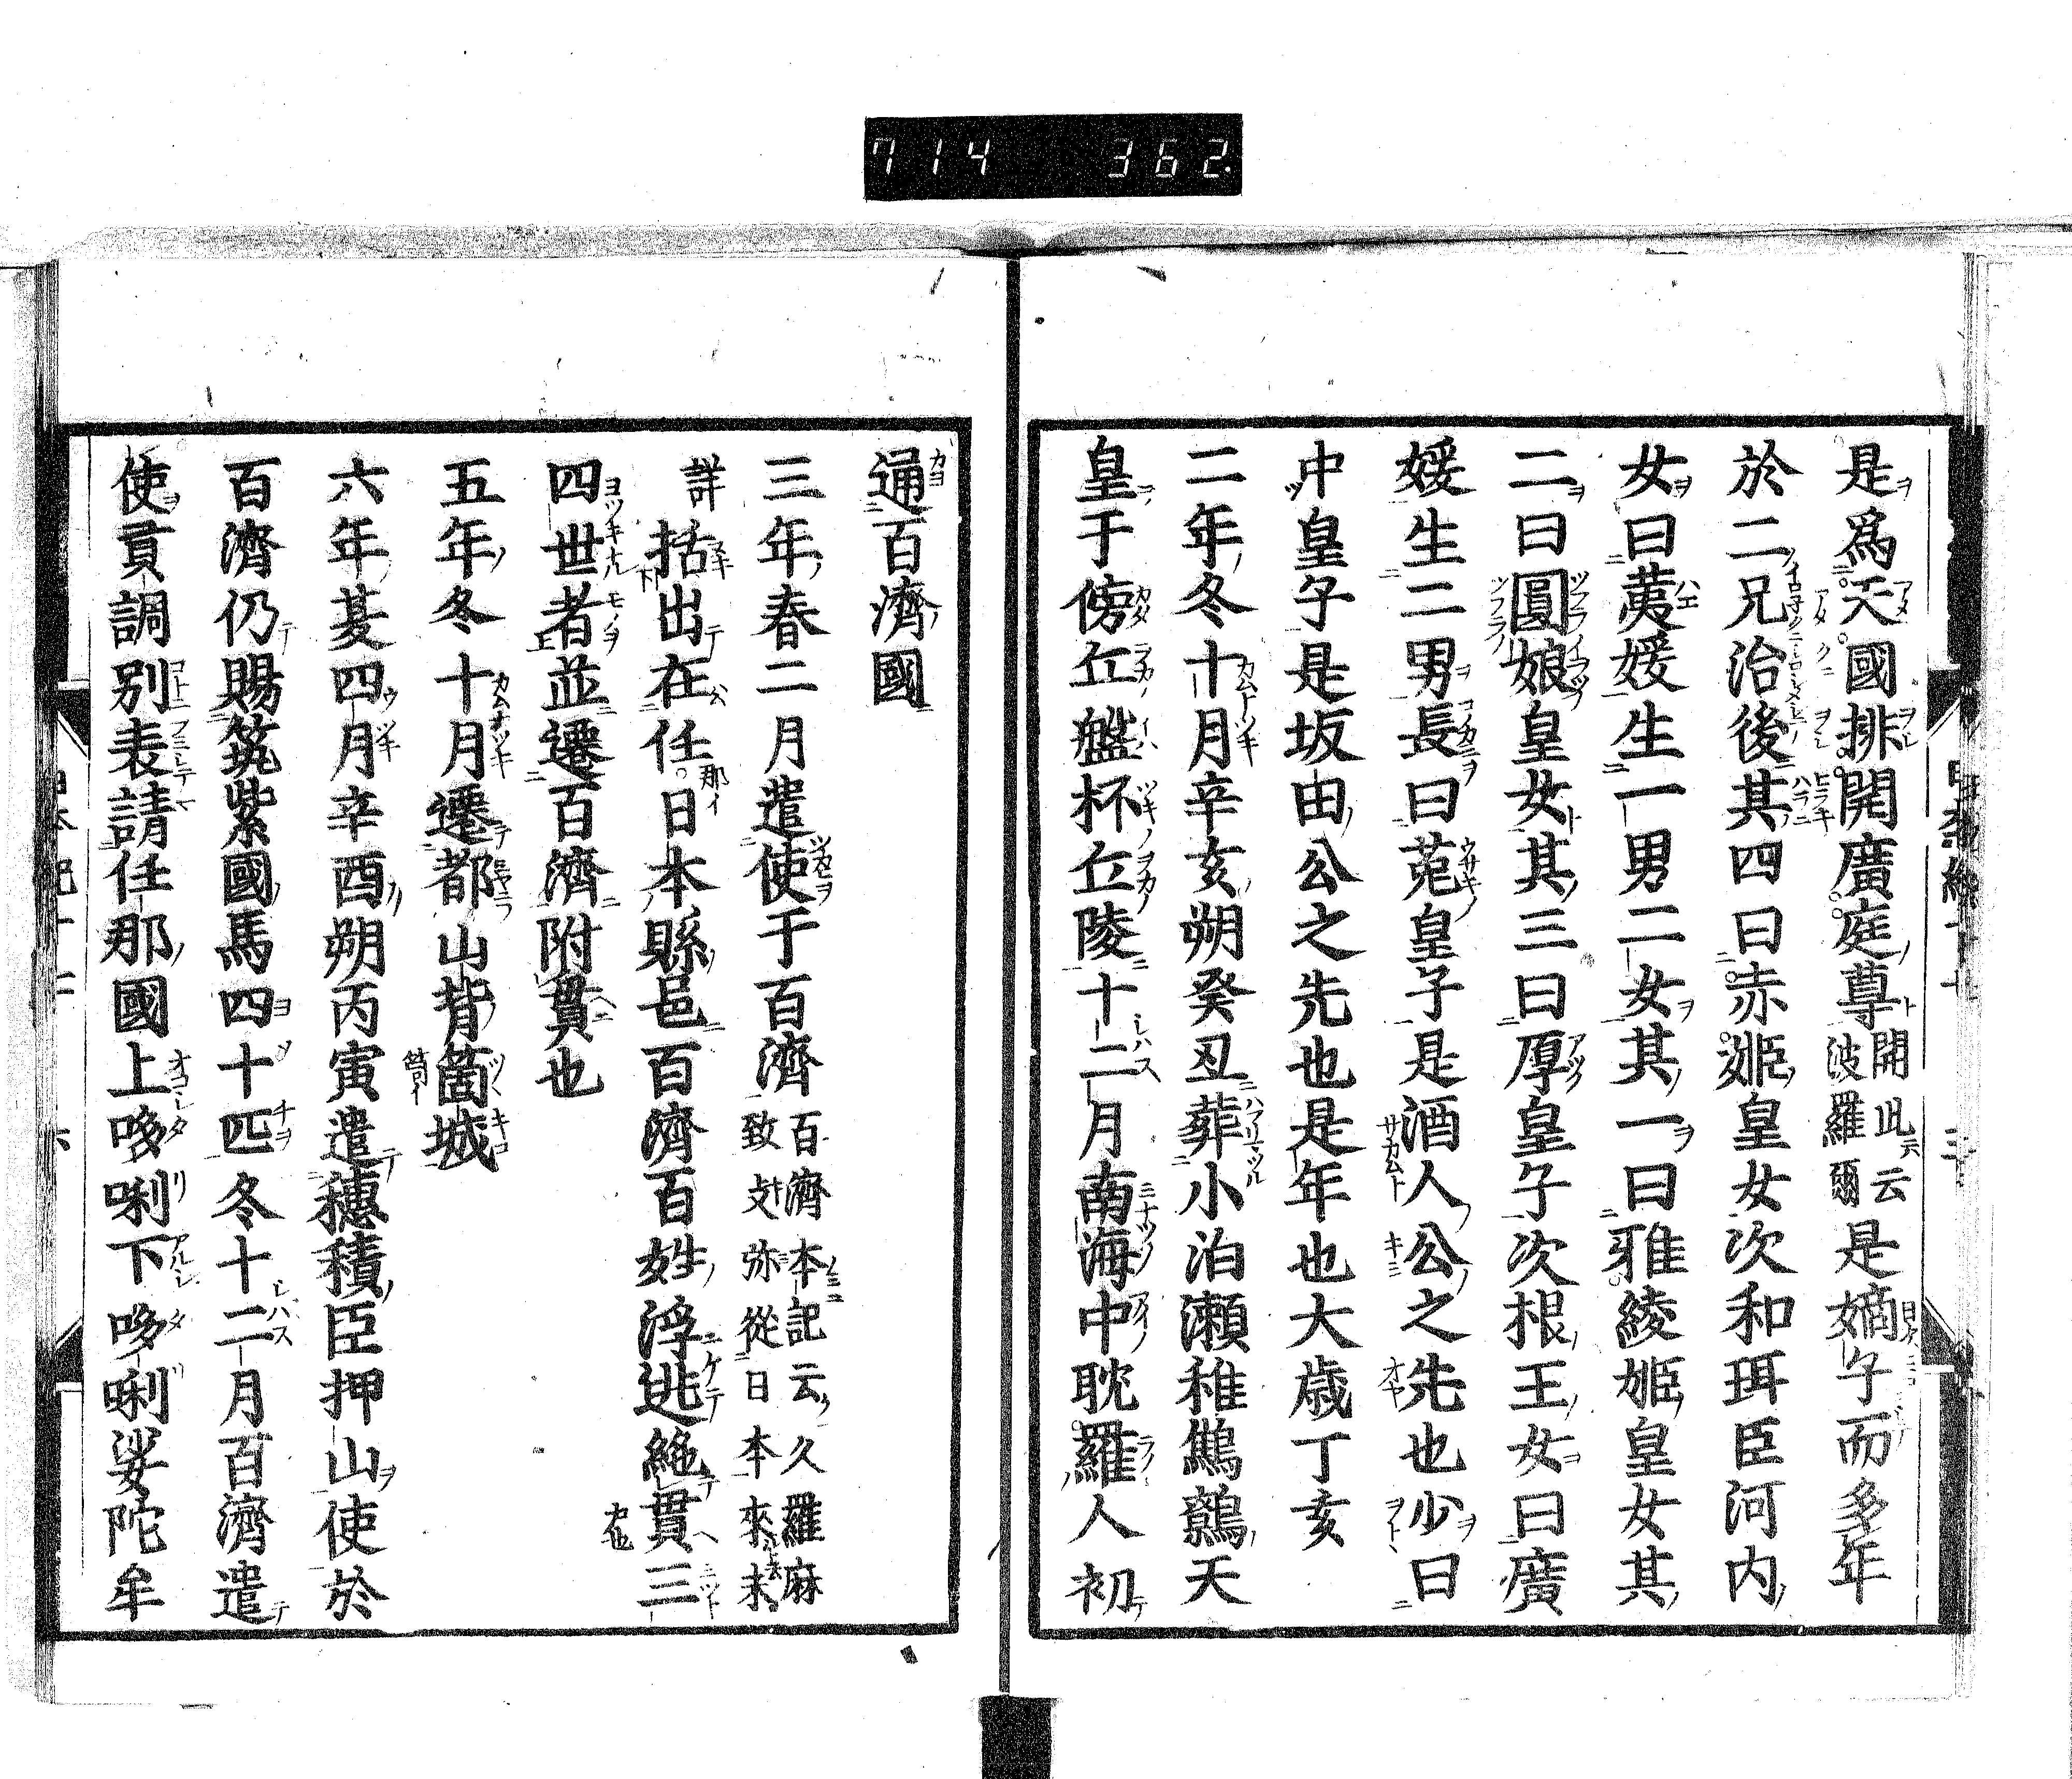 714 362
是爲天國排開廣庭尊開此云波羅爾是嫡子而多年
於二兄治後其四曰赤姬皇女次和珥臣河内
女曰荑媛生一男二女其一曰稚綾姬皇女其
二曰圓娘皇女其三曰厚皇子次根王女曰廣
媛生二男長曰菟皇子是酒人公之先也少曰
中皇子是坂由公之先也是年也大歳丁亥
二年冬十月辛亥朔癸丑葬小泊瀬稚鷦鷯天
皇于傍丘艦杯丘陵十二月南海中耽羅人初
通百濟國
三年春二月遣使于百濟百濟本記云久羅麻致支弥從日本來未
詳括出在任日本縣邑百濟百姓浮逃絶貫三
四世者並遷百濟附貫也
五年冬十月遷都山背箇城
六年夏四月辛酉朔丙寅遣穗積臣押山使於
百濟仍賜筑紫國馬四十匹冬十二月百濟遣
使貢調別表請任那國上哆唎下哆唎娑陀牟